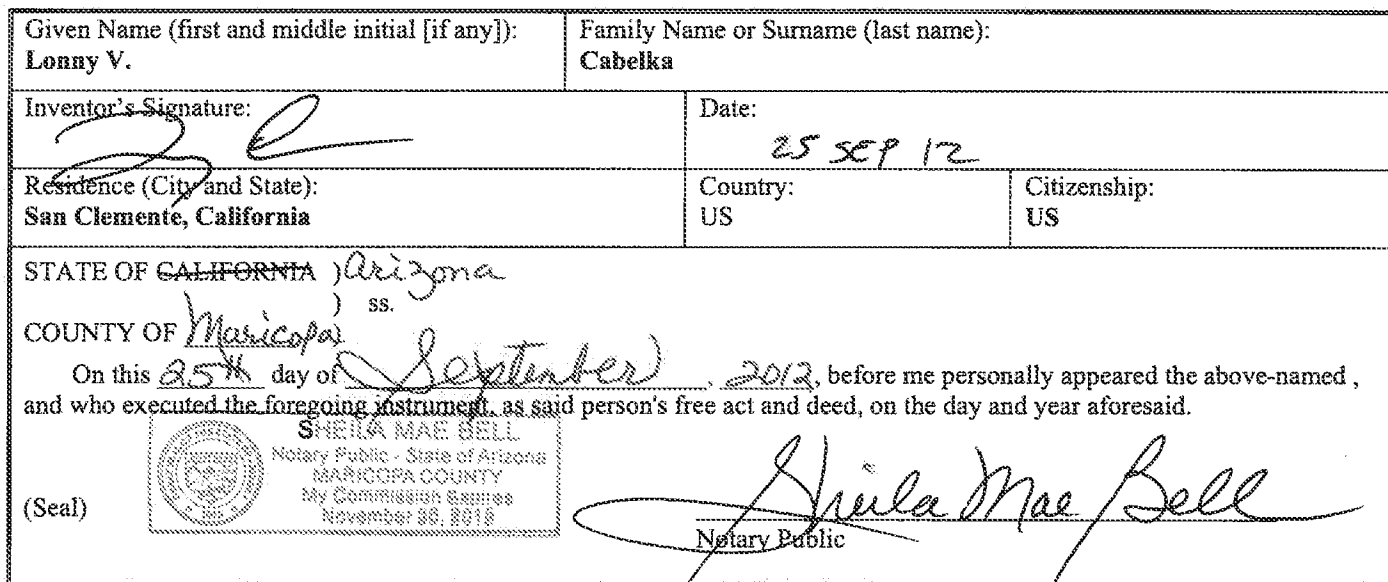 Given Name (first and middle initial [if any]): Family Name or Surname (last name):
Lonny V. Cabelka
Inventor's Signature: Date:
25 SEP 12
Residence (City and State): Country: Citizenship:
San Clemente, California US US
STATE OF CALIFORNIA ) Arizona
) ss.
COUNTY OF Maricopa)
On this 25th day of September, 2012, before me personally appeared the above-named ,
and who executed the foregoing instrument, as said person's free act and deed, on the day and year aforesaid.
SHEILA MAE BELL
Notary Public - State of Arizona
MARICOPA COUNTY
My Commission Expires
November
(Seal)
Sheila Mae Bell
Notary Public